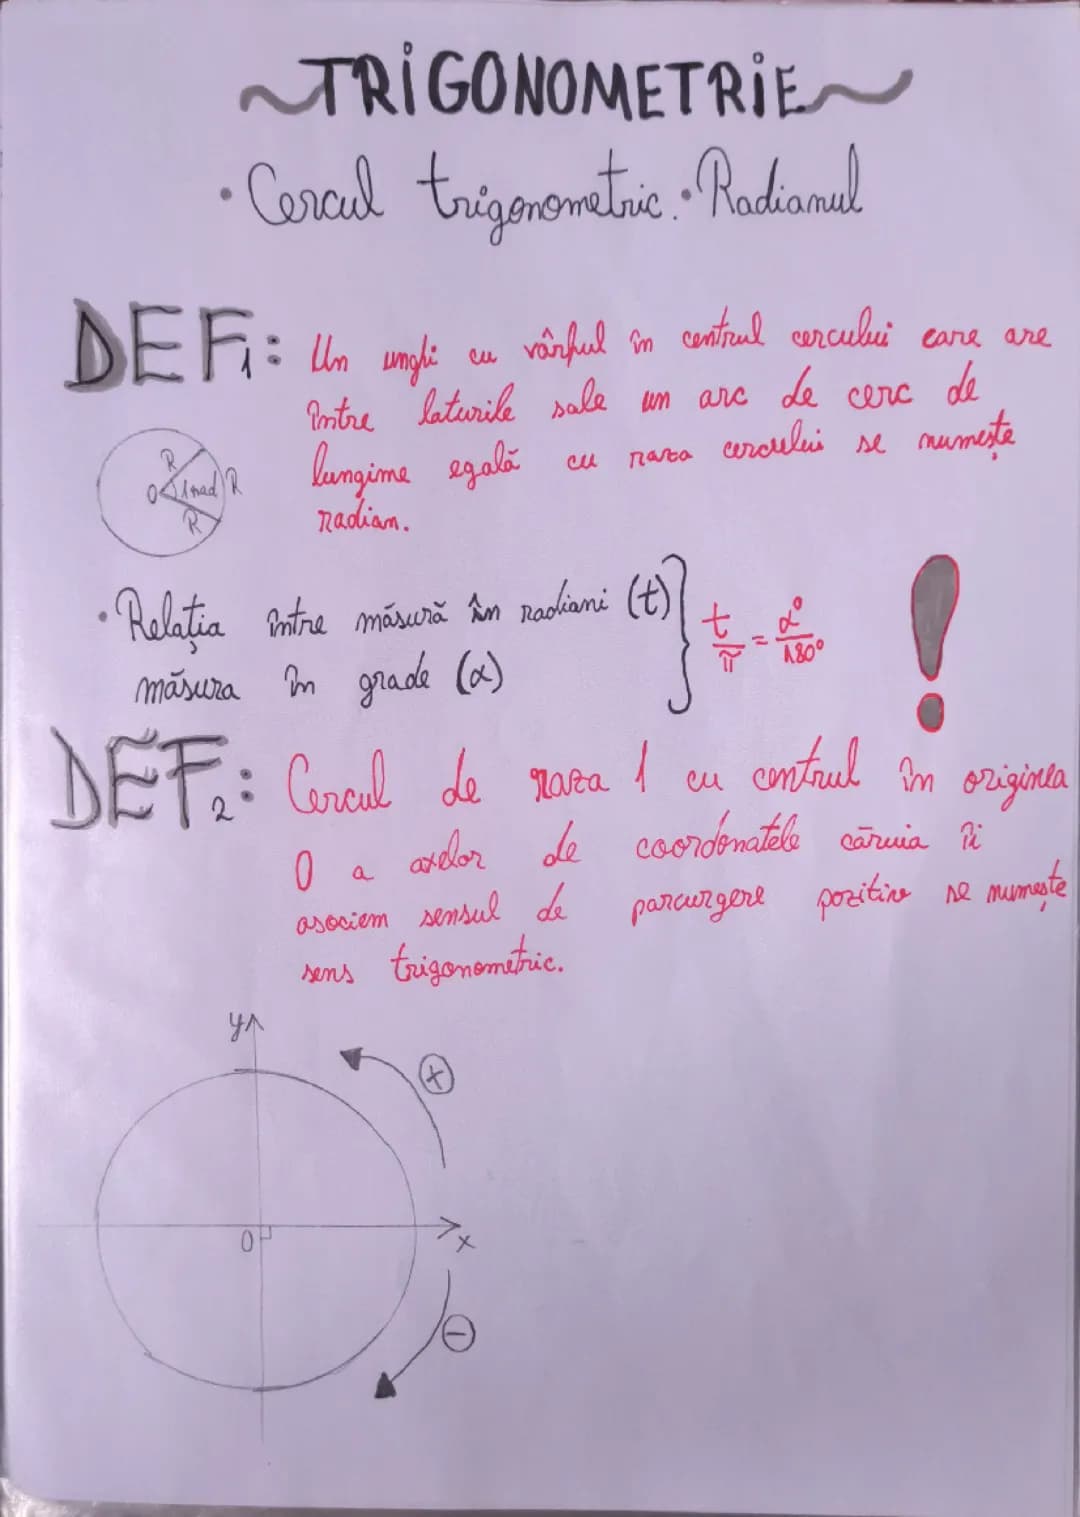 ~TRIGONOMETRIE~
• Cercul trigonometric. • Radianul
DEF1: Un unghi cu vârful în centrul cercului care are
între laturile sale un arc de cerc de
lungime egală cu raza cercului se numește
radian.
R
O 1 rad R
R
• Relația între măsură în radiani (t)
măsura în grade (α)
t/π = α°/180°
!
DEF2: Cercul de raza 1 cu centrul în originea
O a axelor de coordonatele căruia îi
asociem sensul de parcurgere pozitiv se numește
sens trigonometric.
y
+
O
x
-